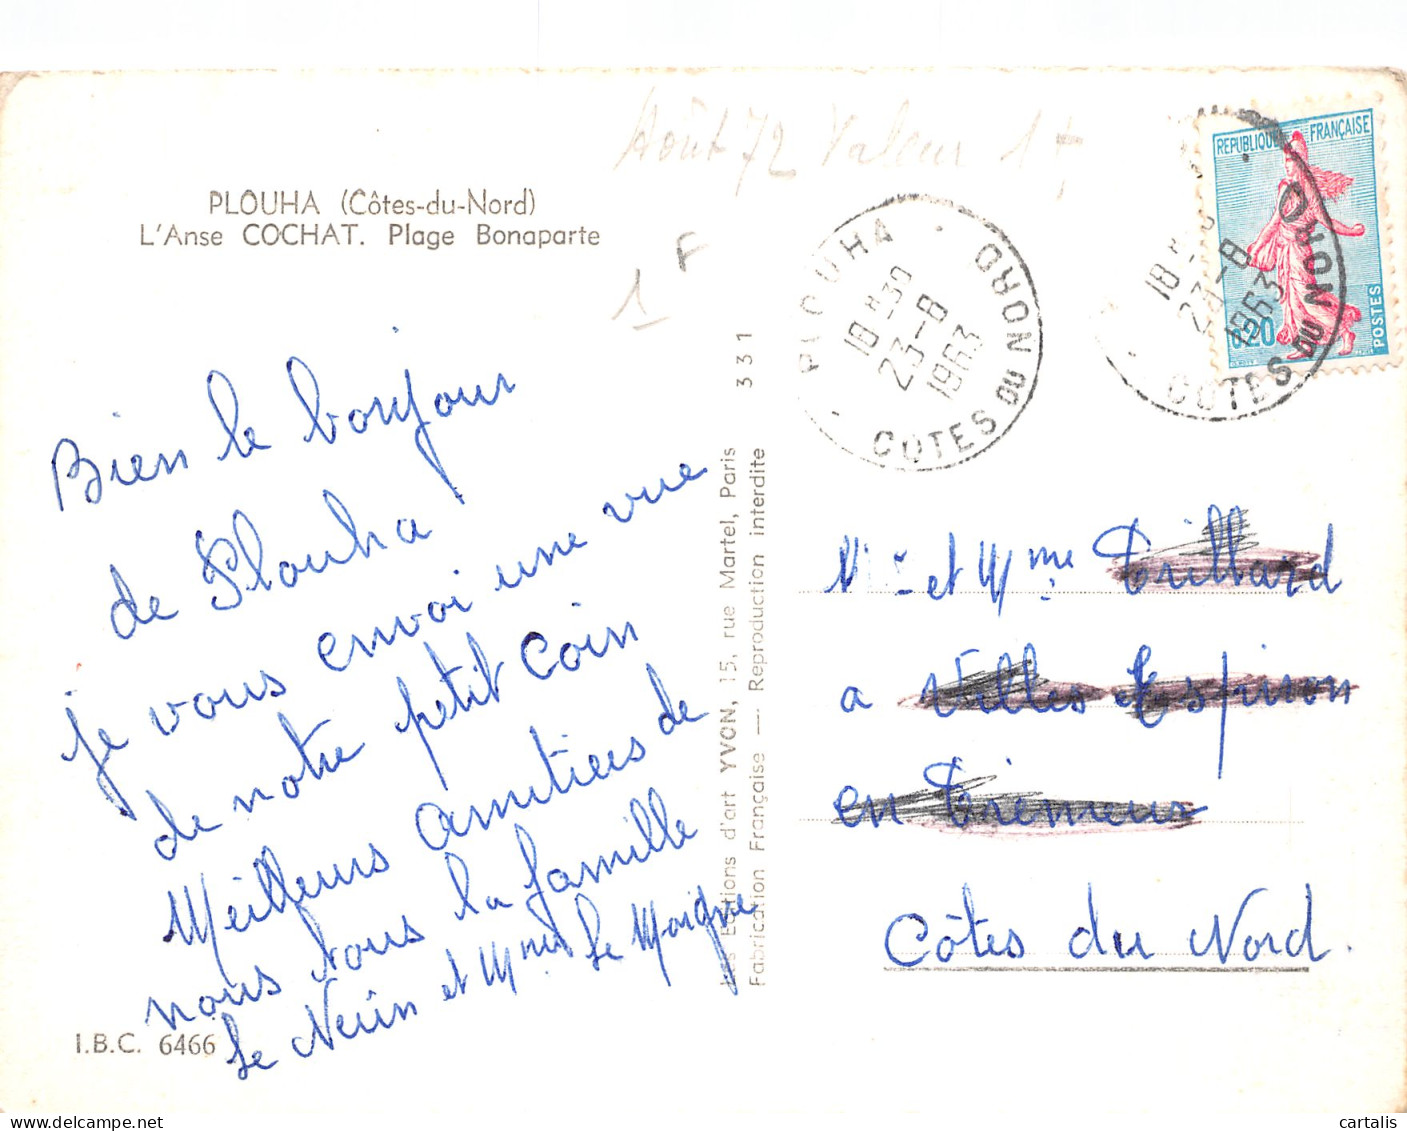 Août 72 Valeur 1F
PLOUHA (Côtes-du-Nord)
L'Anse COCHAT. Plage Bonaparte
1F
Bien le bonjour
de Plouha
je vous envoi une vue
de notre petit coin
Meilleurs amitiers de
nous tous la famille
Le Neün et Mme Le Moigne
I.B.C. 6466
331
Les Éditions d'art YVON, 15, rue Martel, Paris
Fabrication Française — Reproduction interdite
PLOUHA
18H30
23-8
1963
COTES DU NORD
18H
23-8
1963
COTES DU NORD
REPUBLIQUE FRANÇAISE
0,20
POSTES
Mr et Mme Trillard
a Villes Espinon
en Trémeur
Côtes du Nord.
cartalis
www.delcampe.net